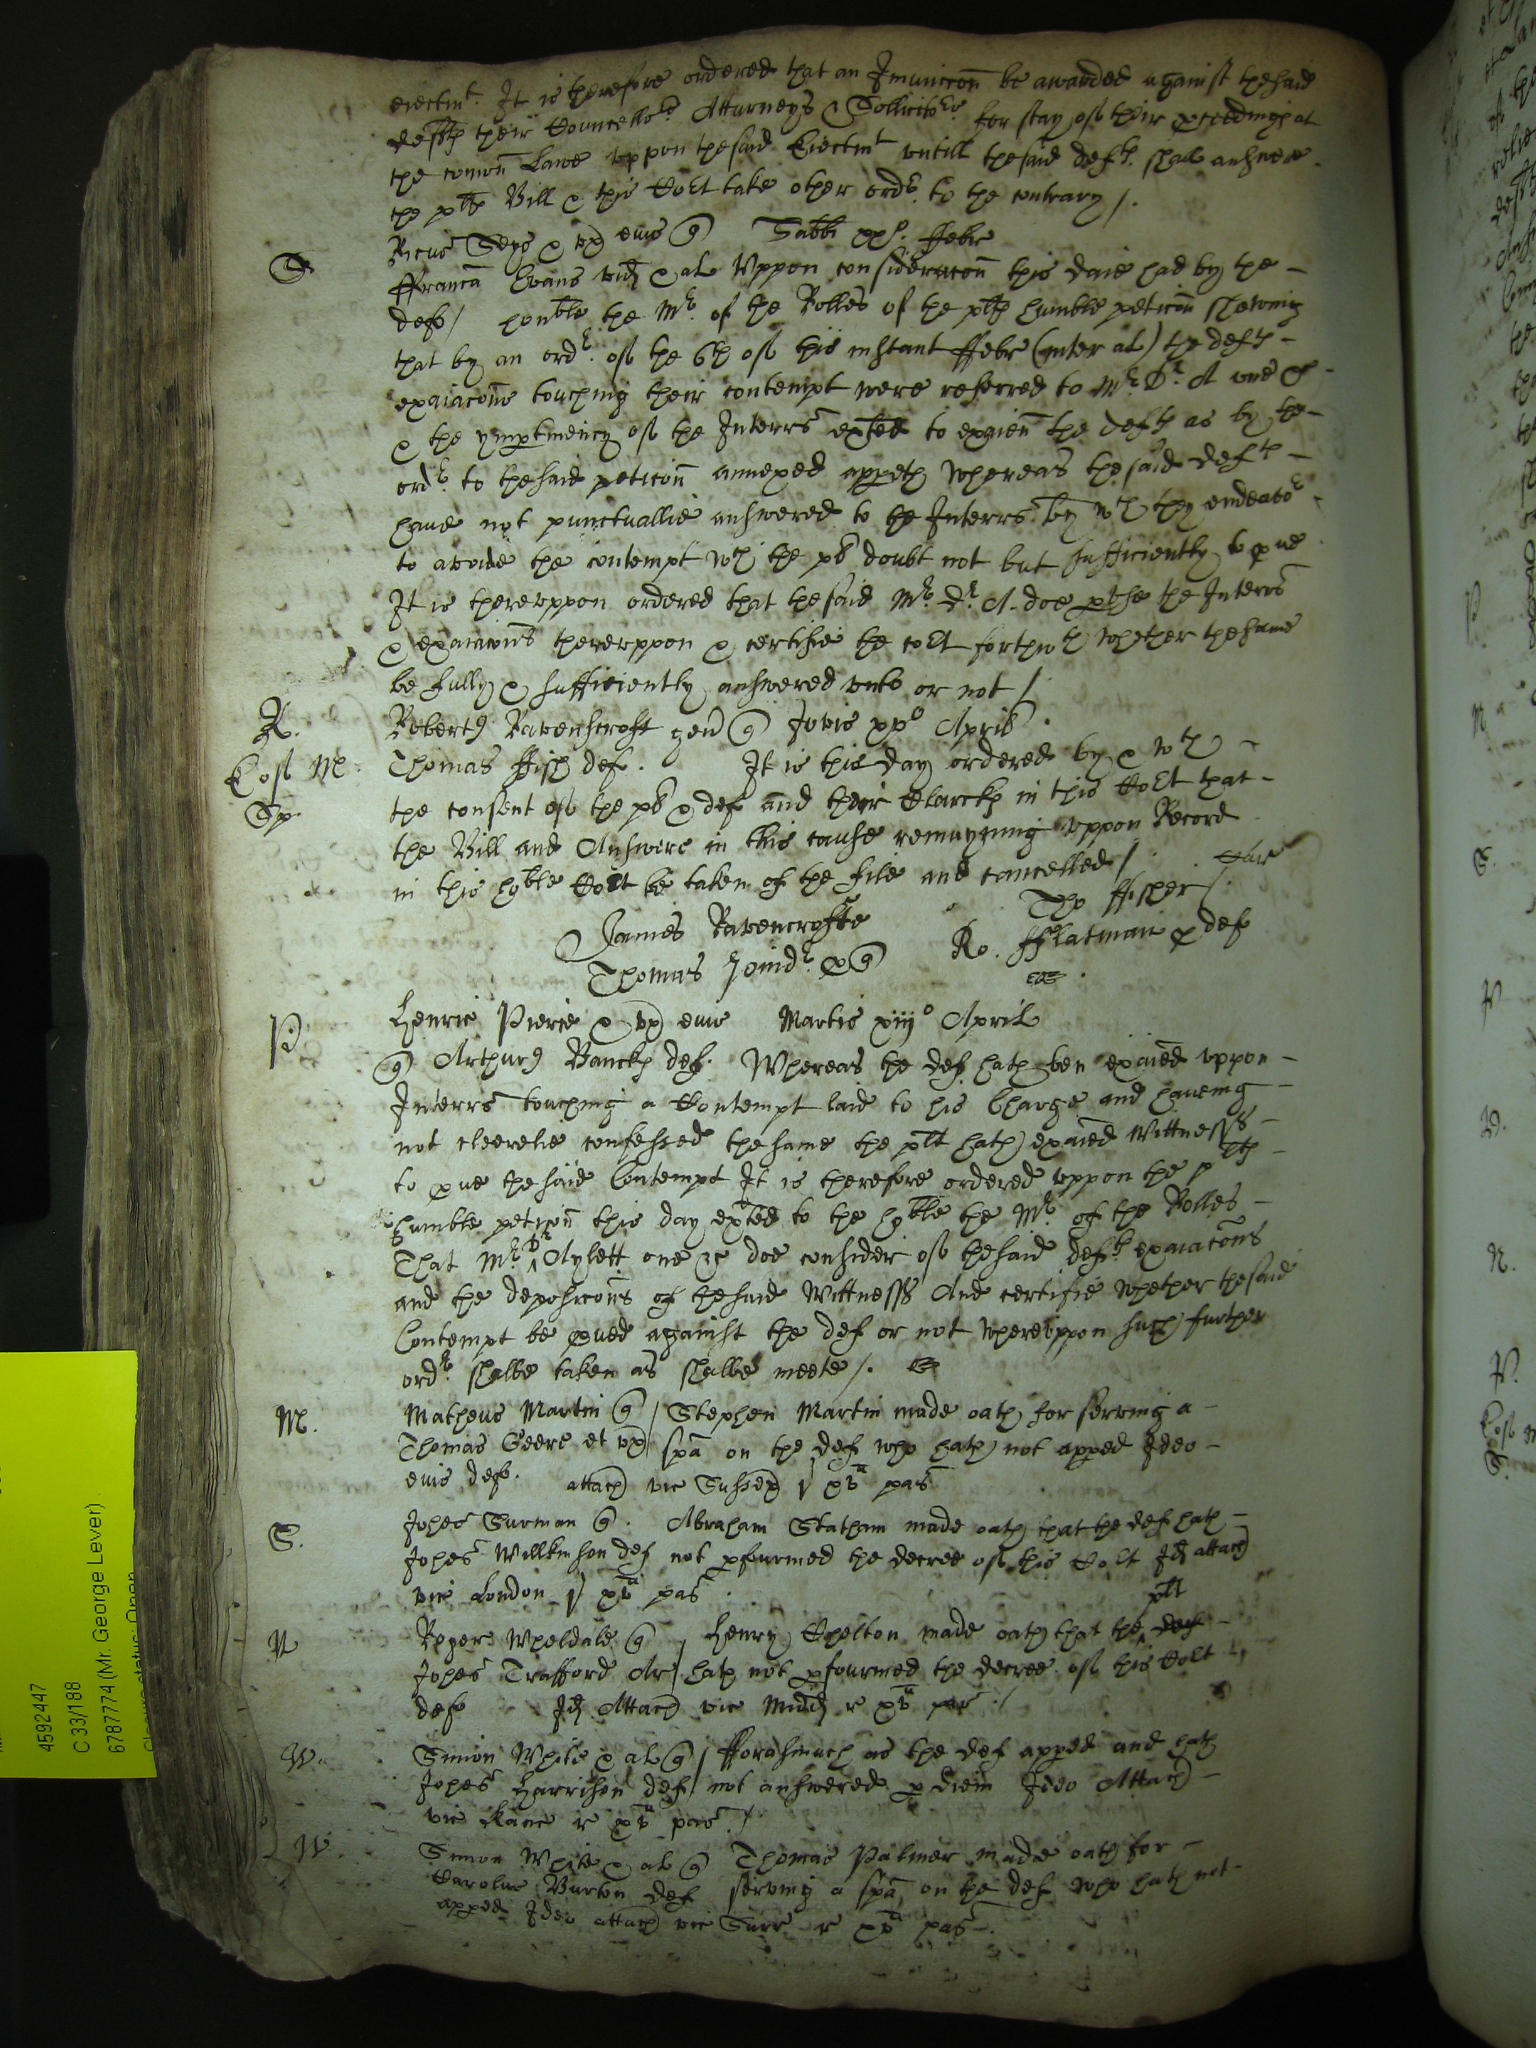 eiectmt. It is therefore ordered that an Iniunccon be awarded against the said
defts their Councellors Attorneys & Sollicitors for stay of their proceedings at
the comon Lawe uppon the said Eiectmt untill the said defts shall answere
the plts Bill & this Cort take other ordr to the contrary /.
S Ricus Seys & ux eius q Sabbi xxj Febr
ffrancā Evans vid & al Uppon consideracon this daie had by the
def / honble the Mr of the Rolles of the plts humble peticon shewing
that by an ordr of the 6th of this instant ffebr (inter al) the defts
exaiacons touching their contempt were referred to Mr Dr A one &
& the ympertinency of the Interrs exted to exaien the defts as by the
ordr to the said peticon annexed appeth Whereas the said defts
have not punctuallie answered to the Interrs by wch they endeavor
to avoide the contempt wch the pl doubt not but sufficiently to prve
It is thereuppon ordered that the said Mr Dr A. doe pvse the Interrs
& exaiacons thereuppon & certifie the cort forthwth whether the same
be fully & sufficiently answered unto or not /
R. Robertus Ravenscroft gen q Jovis xxo April
Thomas ffish def. It is this day ordered by & wth
the consent of the pl & def and their Clarcks in this Cort that
Sp.
the Bill and Answere in this cause remayning uppon Record
in this hoble Cort be taken of the file and cancelled /.
James Ravencrofte Tho ffisher /
Thomas q Ro. fflatman p def
P. Henric Pierce & ux eius Martis xiijo April
q Arthurus Bancks def. Whereas the def hath ben exaied uppon
Interrs touching a Contempt laid to his Charge and haveing
not cleerelie confessed the same the plt hath exaied Wittnesss
to prve the said Contempt It is therefore ordered uppon the plts
humble peticon this day exted to the hoble the Mr of the Rolles
That Mr Dr Aylett one &c doe consider of the said defts exaiacons
and the deposicons of the said Wittnesss And certifie whether the said
Contempt be prved against the def or not whereuppon such further
ordr shalbe taken as shalbe meete /.
M. Matheus Martin q / Stephen Martin made oath for serving a
Thomas Geere et ux / spa on the def who hath not apped Ideo
eius def. attach vic Sussex r xva pas
S. Johes Surman q. Abraham Statham made oath that the def hath
Johes Willkinson def not pfourmed the decree of this Cort Id attach
vic London r xva pas
plt
Roger Wheldale q / Henry Chelton made oath that the def
Johes Trafford Ar / hath not pfourmed the decree of this Cort
def Id Attach vic Midd r xva pas /
W. Simon White & al q / fforasmuch as the def apped and hath
Johes Harrison def / not answered p diem Ideo Attach
vic r xva pas. /
W. Simon White & al q Thomas Palmer made oath for
Carolus Burton def serving a spa on the def who hath not
apped Ideo attach vic Surr r xva pas.
4592447
C 33/188
6787774 (Mr. George Lever)
Closure status: Open